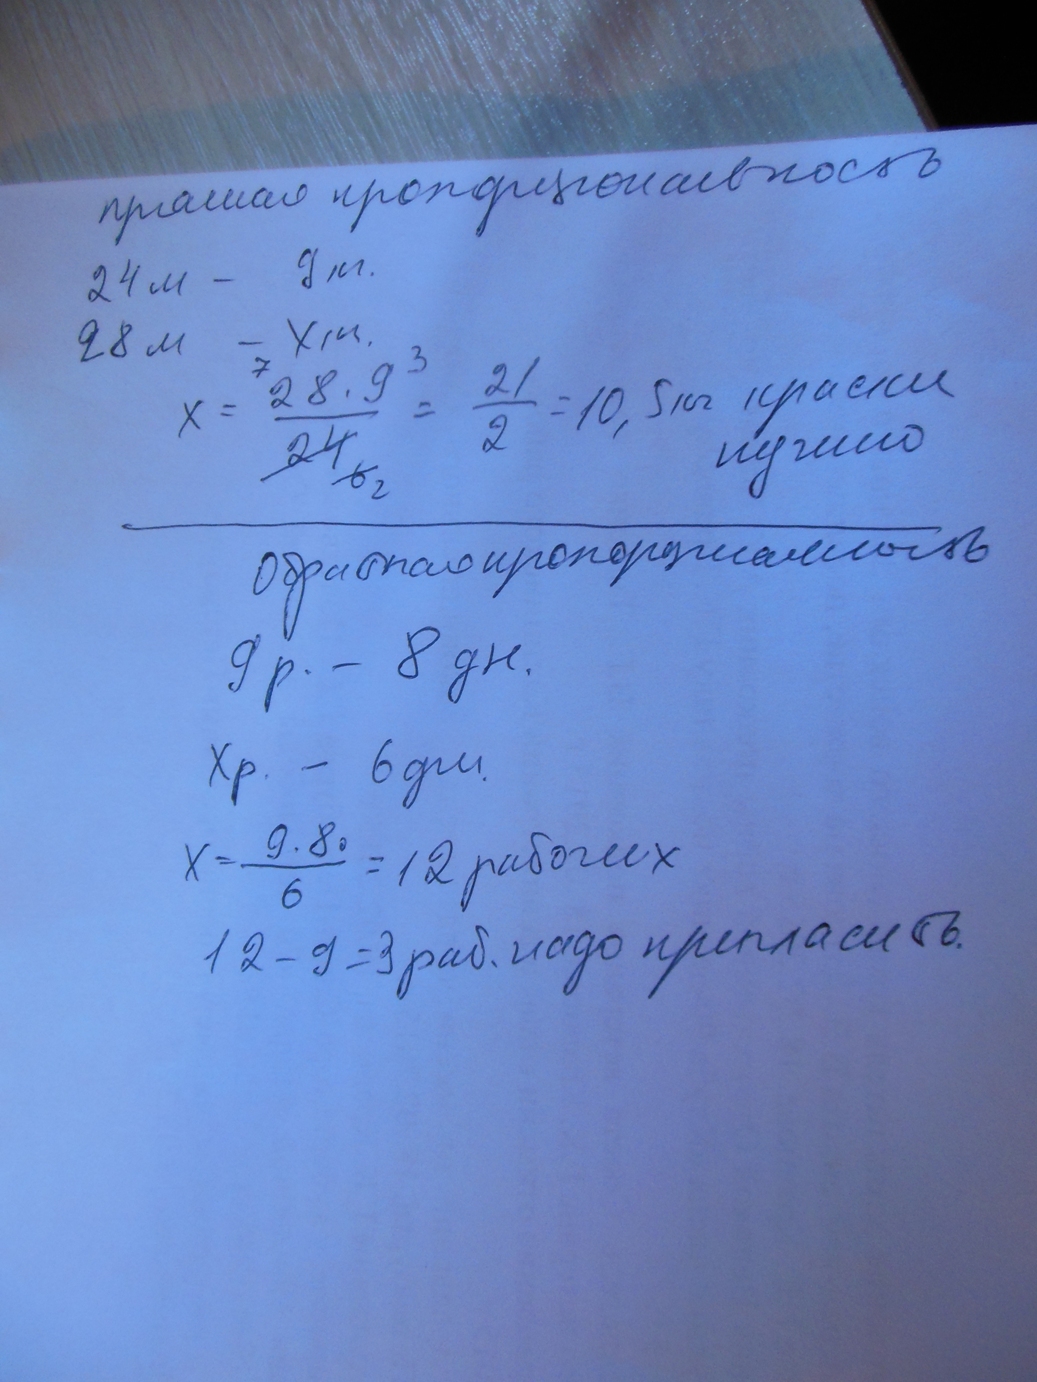 прямая пропорциональность
24 м - 9 кг.
28 м - X кг.
7 3
X = 28 · 9 / 24 = 21 / 2 = 10,5 кг краски
6 2
нужно
Обратная пропорциональность
9 р. - 8 дн.
Xр. - 6 дн.
X = 9 · 8 / 6 = 12 рабочих
12 - 9 = 3 раб. надо пригласить.